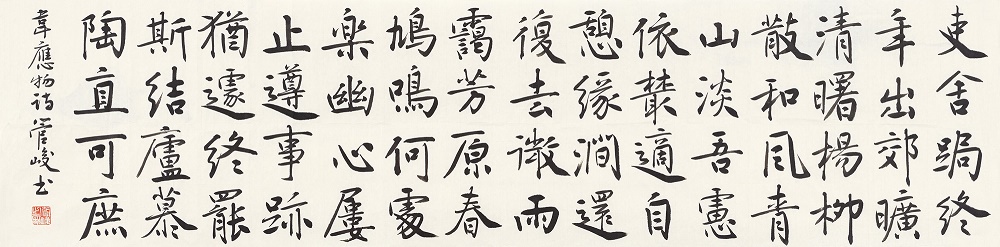 吏舍跼終
年出郊曠
清曙楊柳
散和風青
山淡吾慮
依叢適自
憩緣澗還
復去微雨
靄芳原春
鳩鳴何處
樂幽心屢
止遵事跡
猶遽終罷
斯結廬慕
陶直可庶
韋應物詩 管峻书